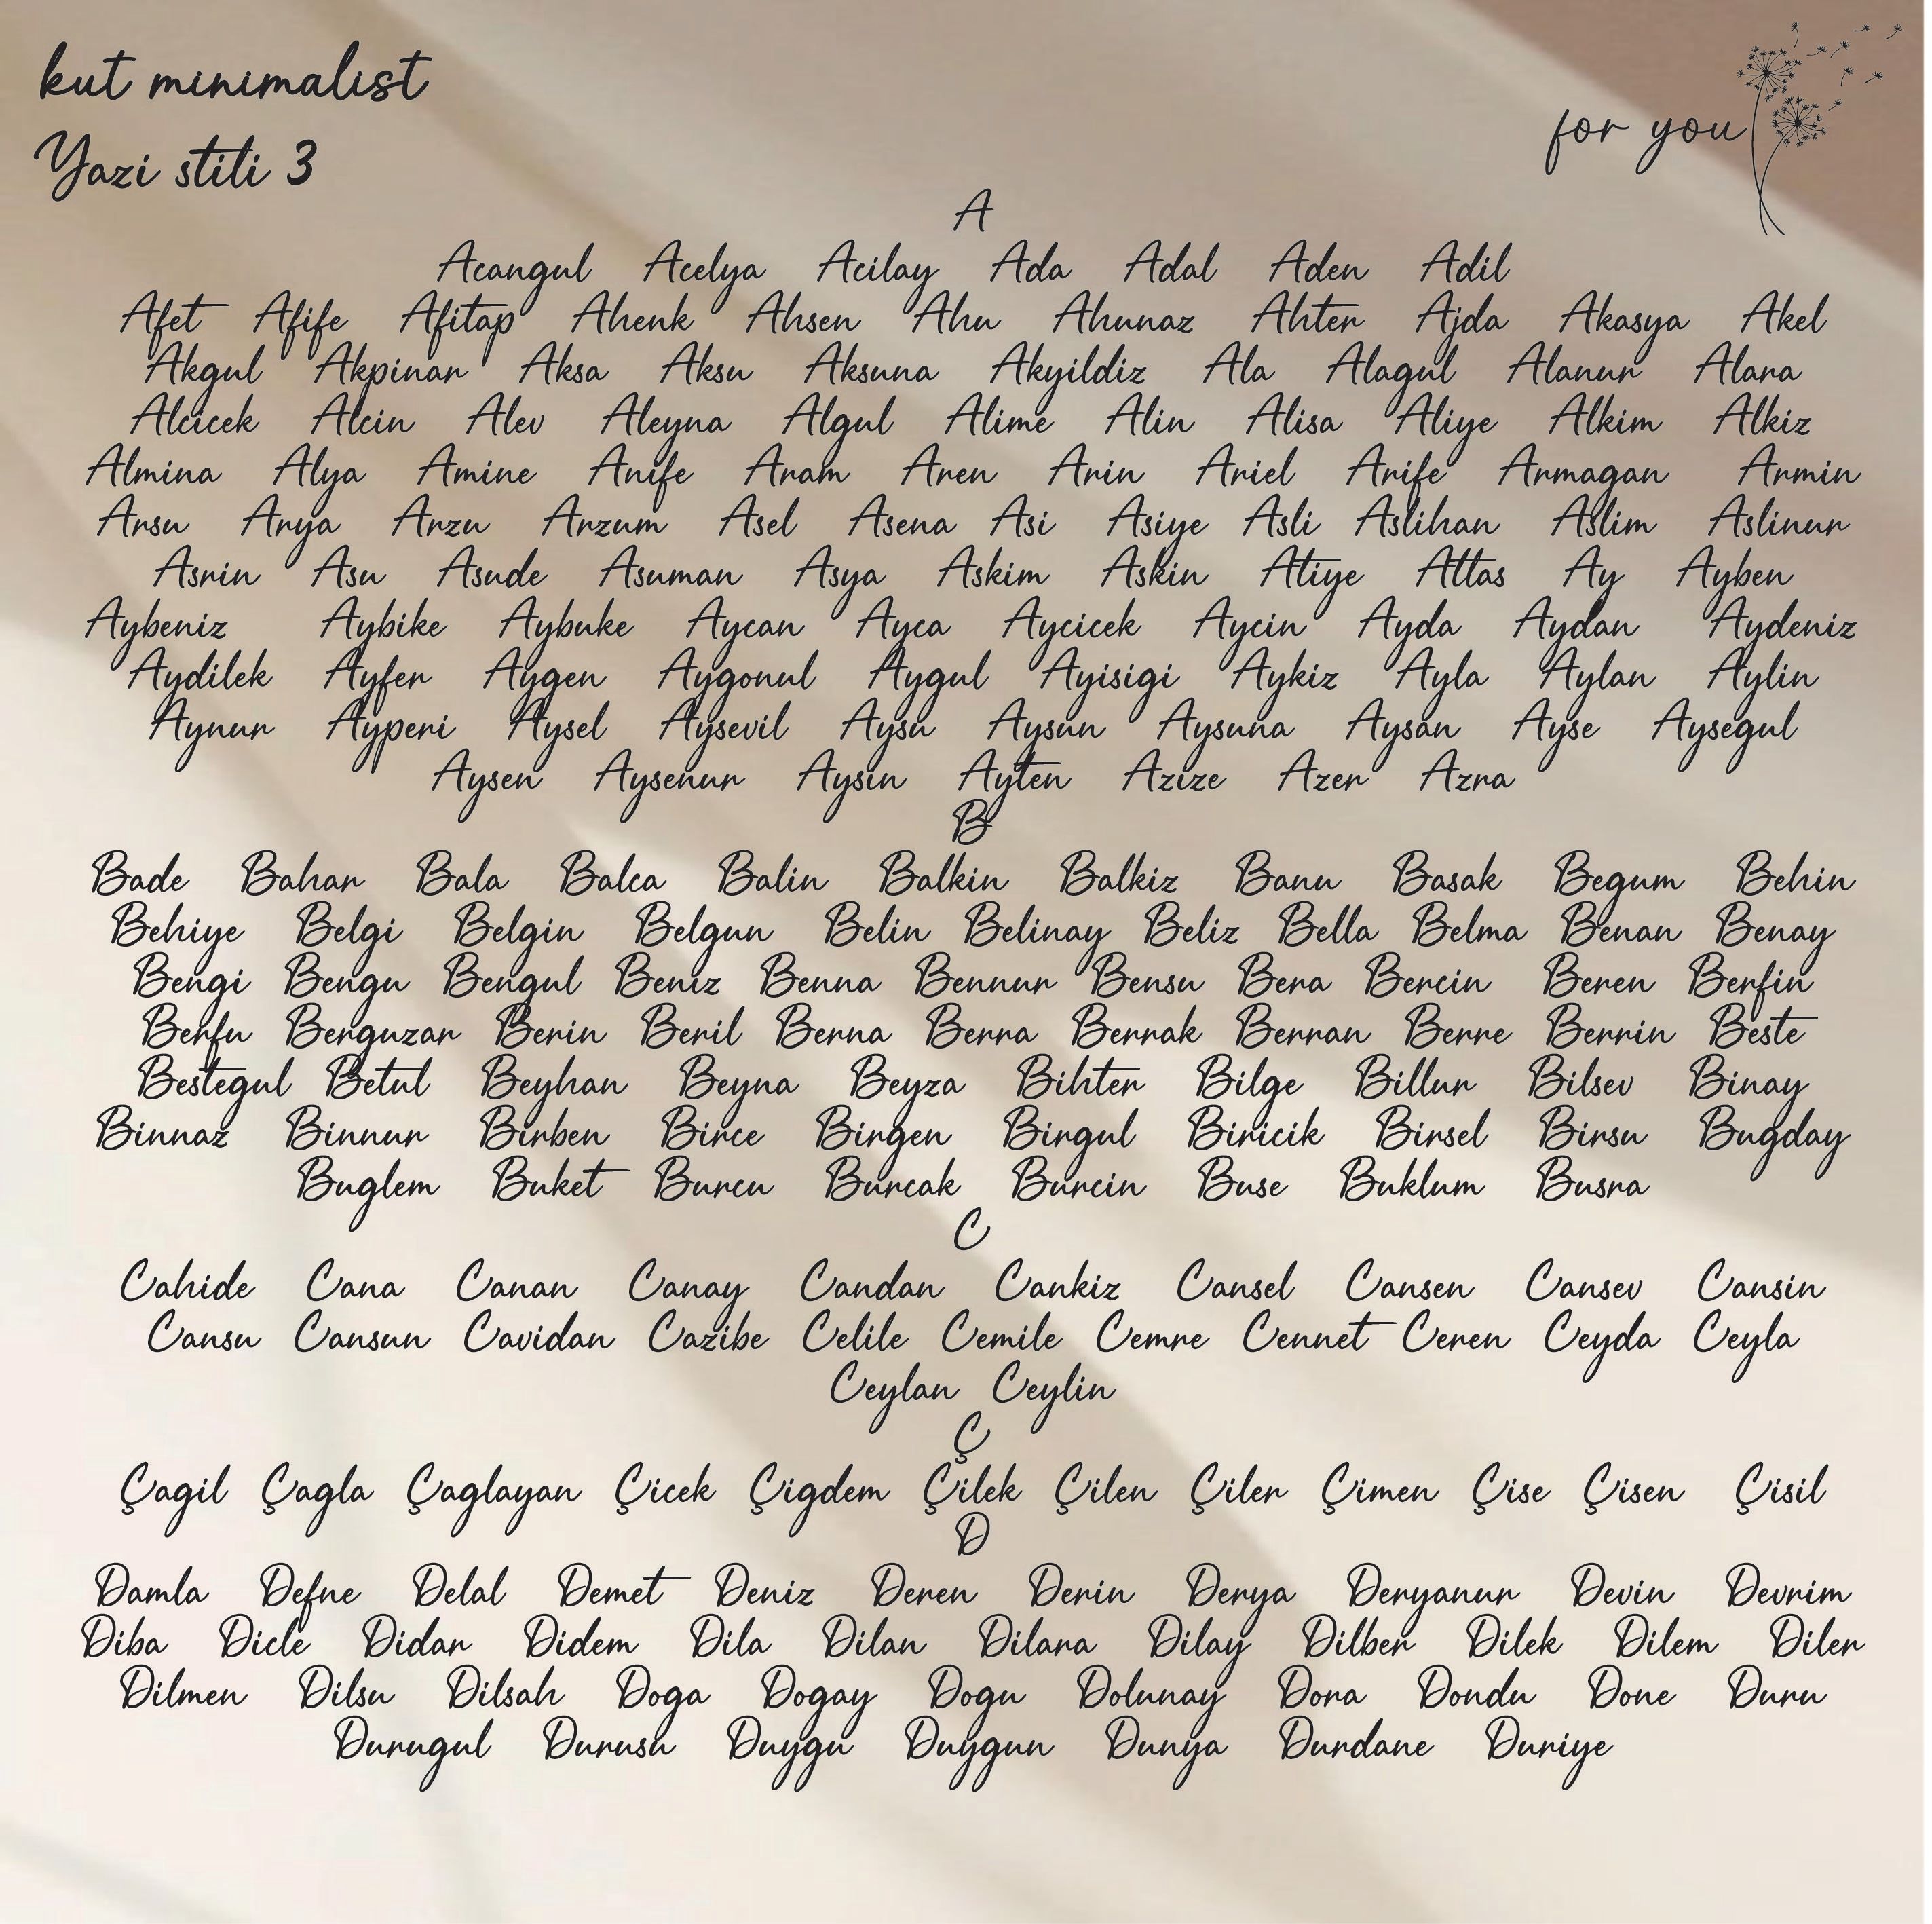 kut minimalist
for you
Yazi stili 3
A
Acangul Acelya Acilay Ada Adal Aden Adil
Afet Afife Afitap Ahenk Ahsen Ahu Ahunaz Ahter Ajda Akasya Akel
Akgul Akpinar Aksa Aksu Aksuna Akyildiz Ala Alagul Alanur Alara
Alcicek Alcin Alev Aleyna Algul Alime Alin Alisa Aliye Alkim Alkiz
Almina Alya Amine Anife Aram Aren Arin Ariel Arife Armagan Armin
Arsu Arya Arzu Arzum Asel Asena Asi Asiye Asli Aslihan Aslim Aslinur
Asrin Asu Asude Asuman Asya Askim Askin Atiye Attas Ay Ayben
Aybeniz Aybike Aybuke Aycan Ayca Aycicek Aycin Ayda Aydan Aydeniz
Aydilek Ayfer Aygen Aygonul Aygul Ayisigi Aykiz Ayla Aylan Aylin
Aynur Ayperi Aysel Aysevil Aysu Aysun Aysuna Aysan Ayse Aysegul
Aysen Aysenur Aysin Ayten Azize Azer Azra
B
Bade Bahar Bala Balca Balin Balkin Balkiz Banu Basak Begum Behin
Behiye Belgi Belgin Belgun Belin Belinay Beliz Bella Belma Benan Benay
Bengi Bengu Bengul Beniz Benna Bennur Bensu Bera Bercin Beren Berfin
Berfu Berguzar Berin Beril Berna Berra Berrak Berran Berre Berrin Beste
Bestegul Betul Beyhan Beyna Beyza Bihter Bilge Billur Bilsev Binay
Binnaz Binnur Birben Birce Birgen Birgul Biricik Birsel Birsu Bugday
Buglem Buket Burcu Burcak Burcin Buse Buklum Busra
C
Cahide Cana Canan Canay Candan Cankiz Cansel Cansen Cansev Cansin
Cansu Cansun Cavidan Cazibe Celile Cemile Cemre Cennet Ceren Ceyda Ceyla
Ceylan Ceylin
Ç
Çagil Çagla Çaglayan Çicek Çigdem Çilek Çilen Çiler Çimen Çise Çisen Çisil
D
Damla Defne Delal Demet Deniz Deren Derin Derya Deryanur Devin Devrim
Diba Dicle Didar Didem Dila Dilan Dilara Dilay Dilber Dilek Dilem Diler
Dilmen Dilsu Dilsah Doga Dogay Dogu Dolunay Dora Dondu Done Duru
Durugul Durusu Duygu Duygun Dunya Durdane Duriye